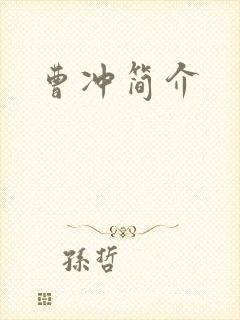 曹冲简介
孫哲